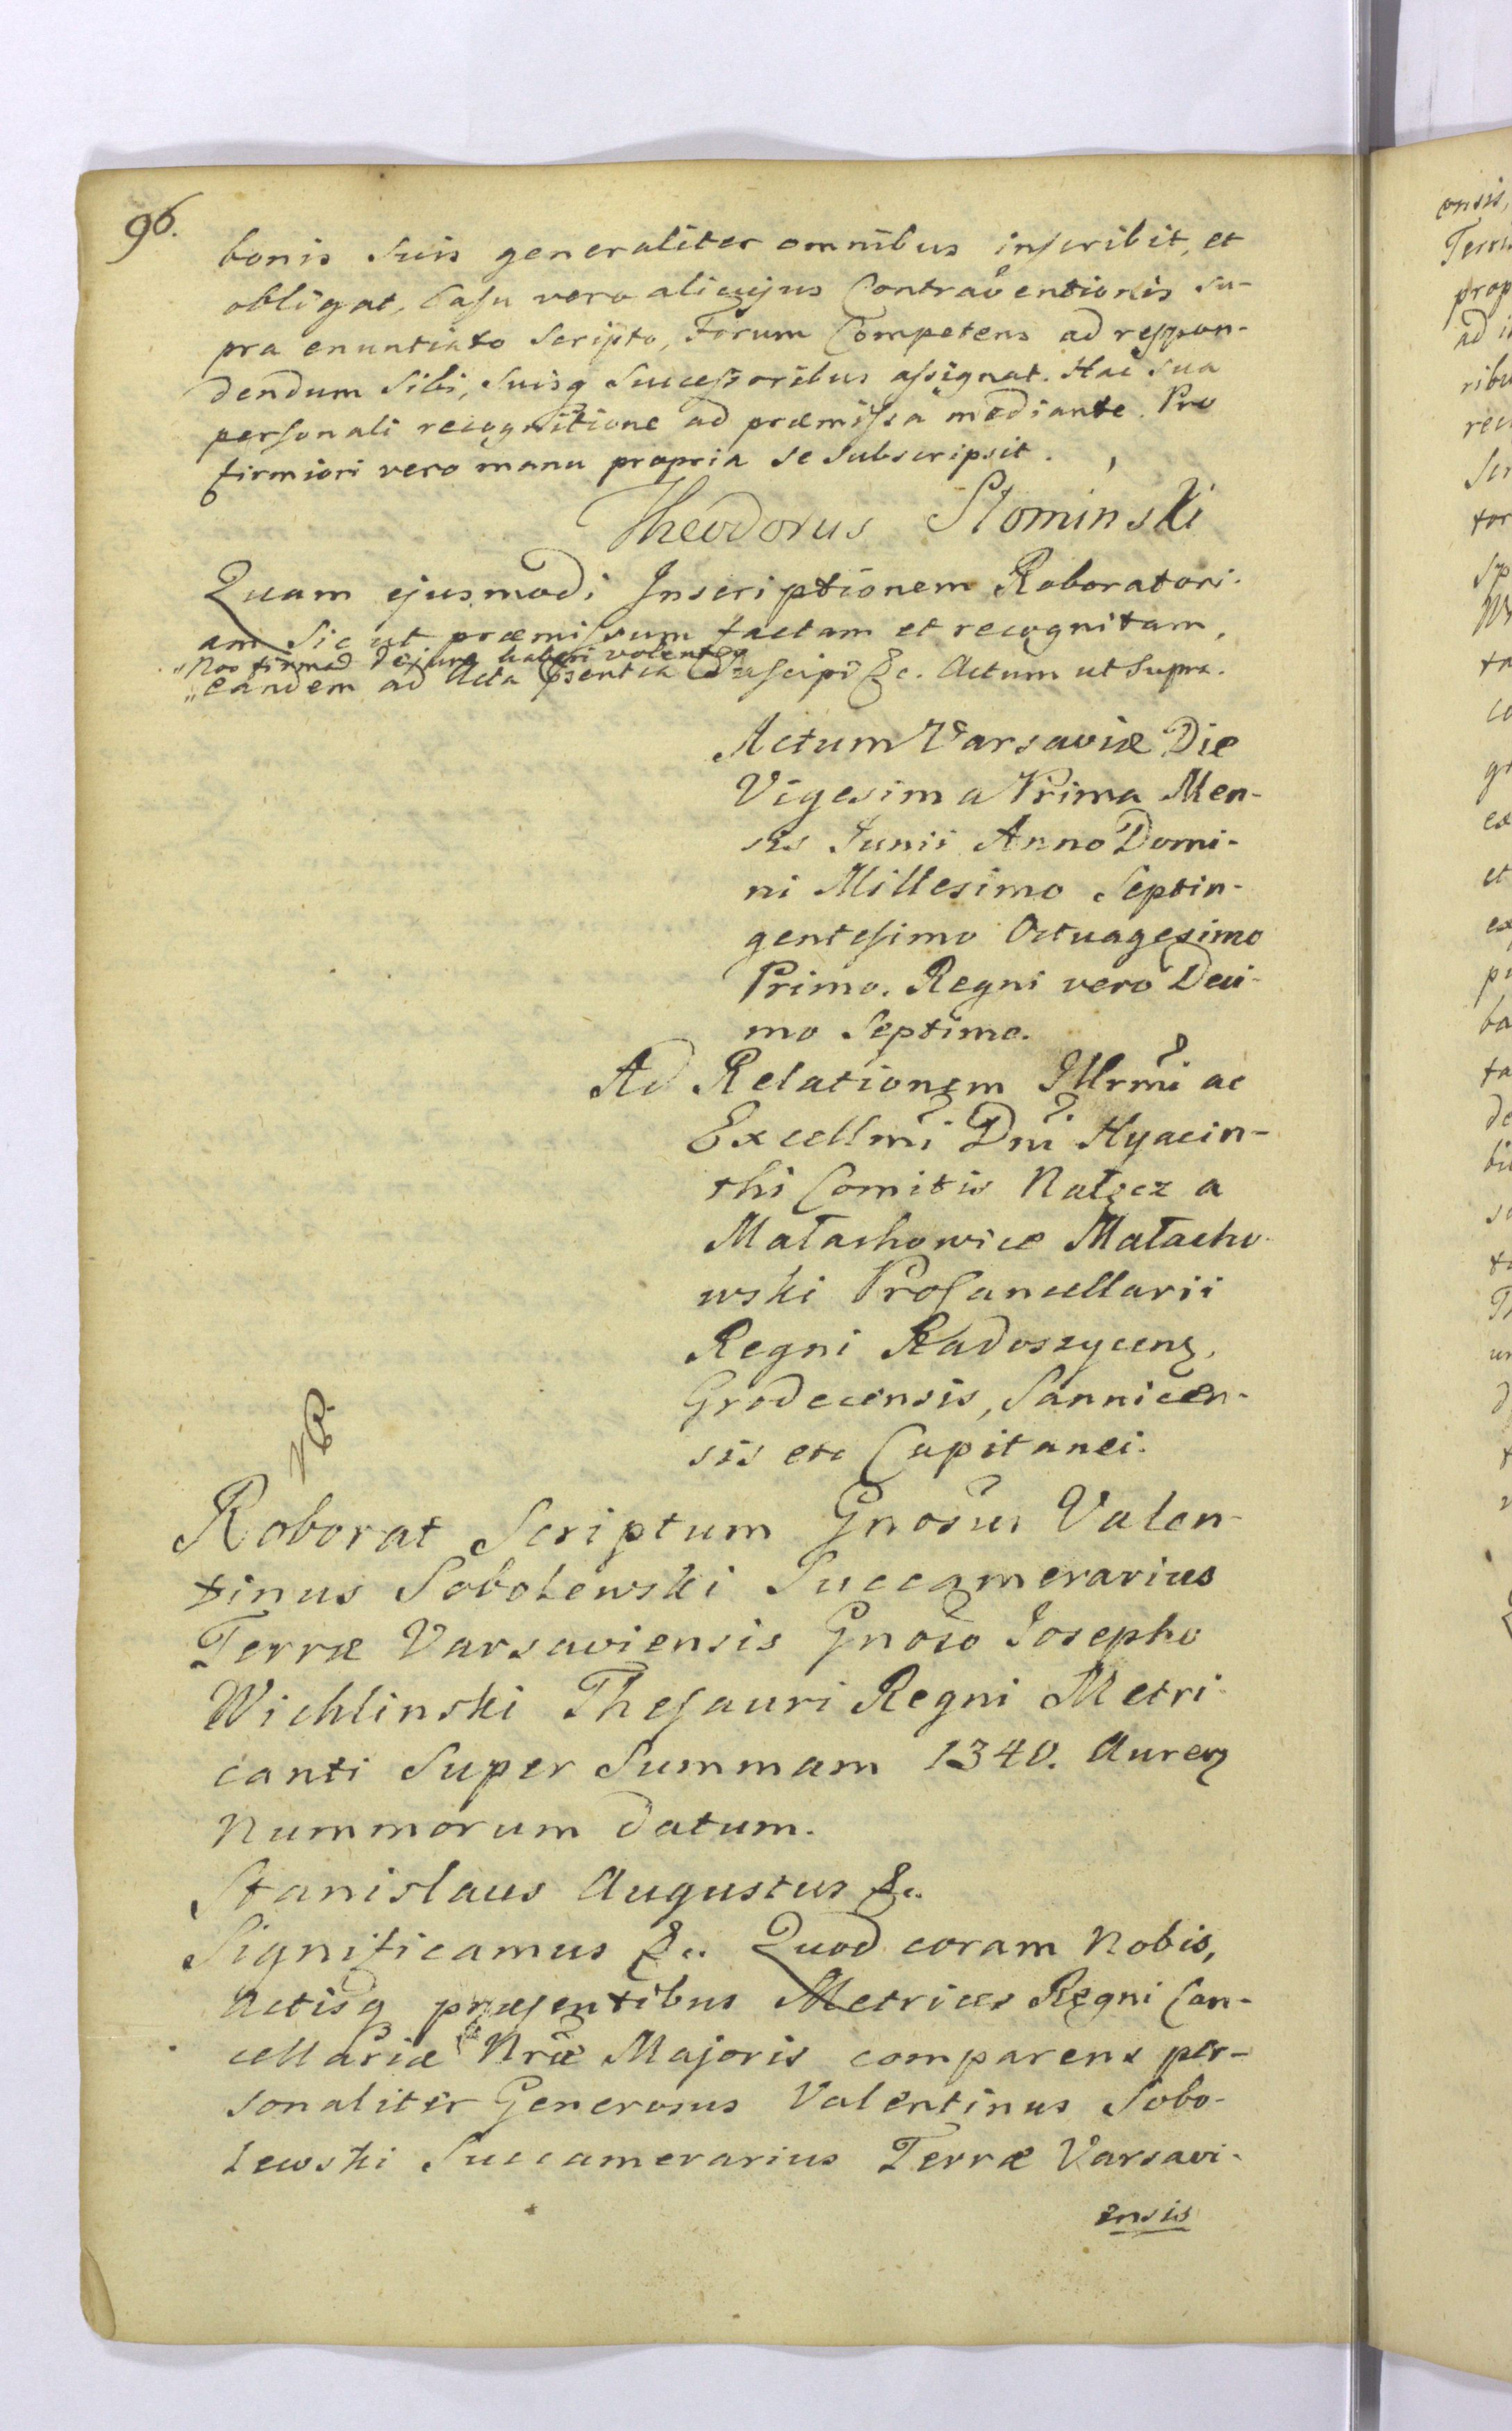 96.
bonis suis generaliter omnibus inscribit, et
obligat, Casu vero alicujus Contraventionis su-
pra enuntiato Scripto, Forum Competens ad respon-
dendum Sibi, Suisq Successoribus assignat. Hac Sua
personali recognitione ad præmissa mediante. Pro
firmiori vero manu propria se subscripsit.
Theodorus Słominski
Quam ejusmodi Inscriptionem Roboratori-
am Sic ut præmissum factam et recognitam,
"Nos firmad dejure haberi volentes
"eandem ad Acta psentia Suscipi &c. Actum ut Supra.
Actum Varsaviæ Die
Vigesima Prima Men-
sis Junii Anno Domi-
ni Millesimo Septin-
gentesimo Octuagesimo
Primo. Regni vero Deci-
mo Septimo.
Ad Relationem Illrmi ac
Excellmi Dni Hyacin-
thi Comitis Nałęcz a
Małachowice Małacho-
wski ProCancellarii
Regni Radoszycens,
Grodecensis, Sannicen-
sis etc Capitanei.
NB.
Roborat Scriptum Gnosus Valen-
tinus Sobolewski Succamerarius
Terræ Varsaviensis Gnoso Josepho
Wichlinski Thesauri Regni Metri-
canti Super Summam 1340. Aureor
Nummorum datum.
Stanislaus Augustus &c.
Significamus &c. Quod coram Nobis,
Actisq præsentibus Metrices Regni Can-
cellariæ Nræ Majoris comparens per-
sonaliter Generosus Valentinus Sobo-
lewski Succamerarius Terræ Varsavi-
ensis